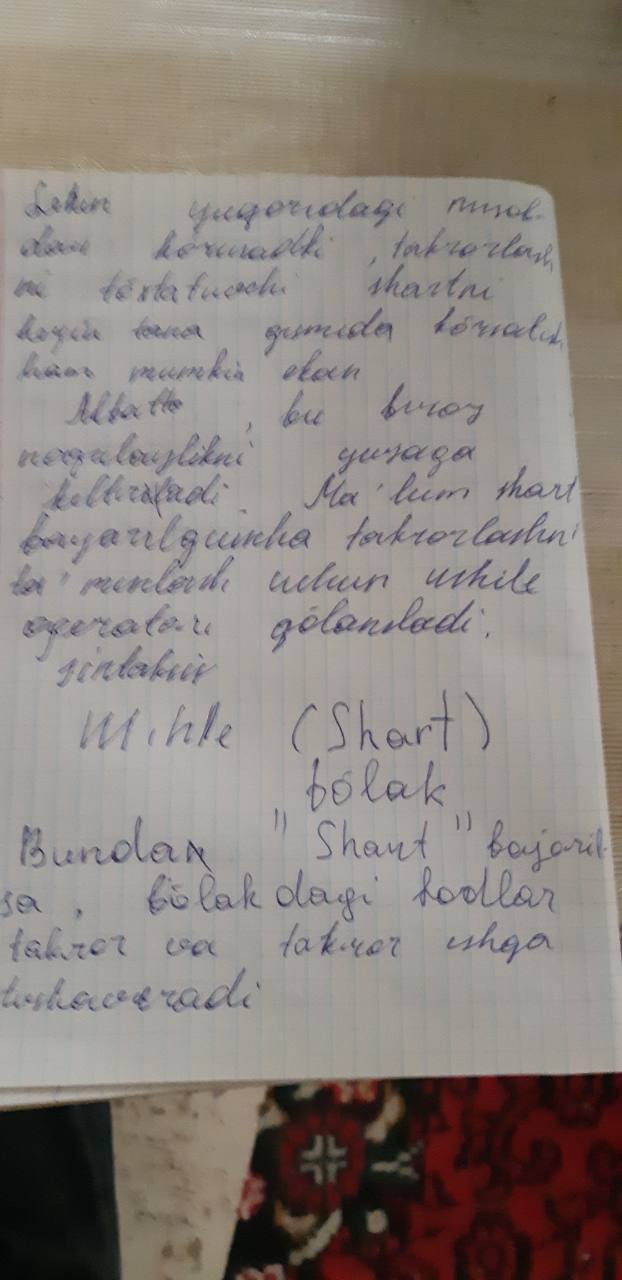 Lekin yuqoridagi misol-
dan kórinadiki, takrorlash
ni tóxtatuvchi shartni
keyin tana qismida kórsatish
ham mumkin ekan
Albatta, bu biroz
noqulaylikni yuzaga
keltiriladi. Ma'lum shart
bajarilguncha takrorlashni
ta'minlash uchun while
operatori qólaniladi.
sintaksis
While (Shart)
bólak
Bundan "Shart" bajaril-
sa, bólakdagi kodlar
takror va takror ishga
tushaveradi